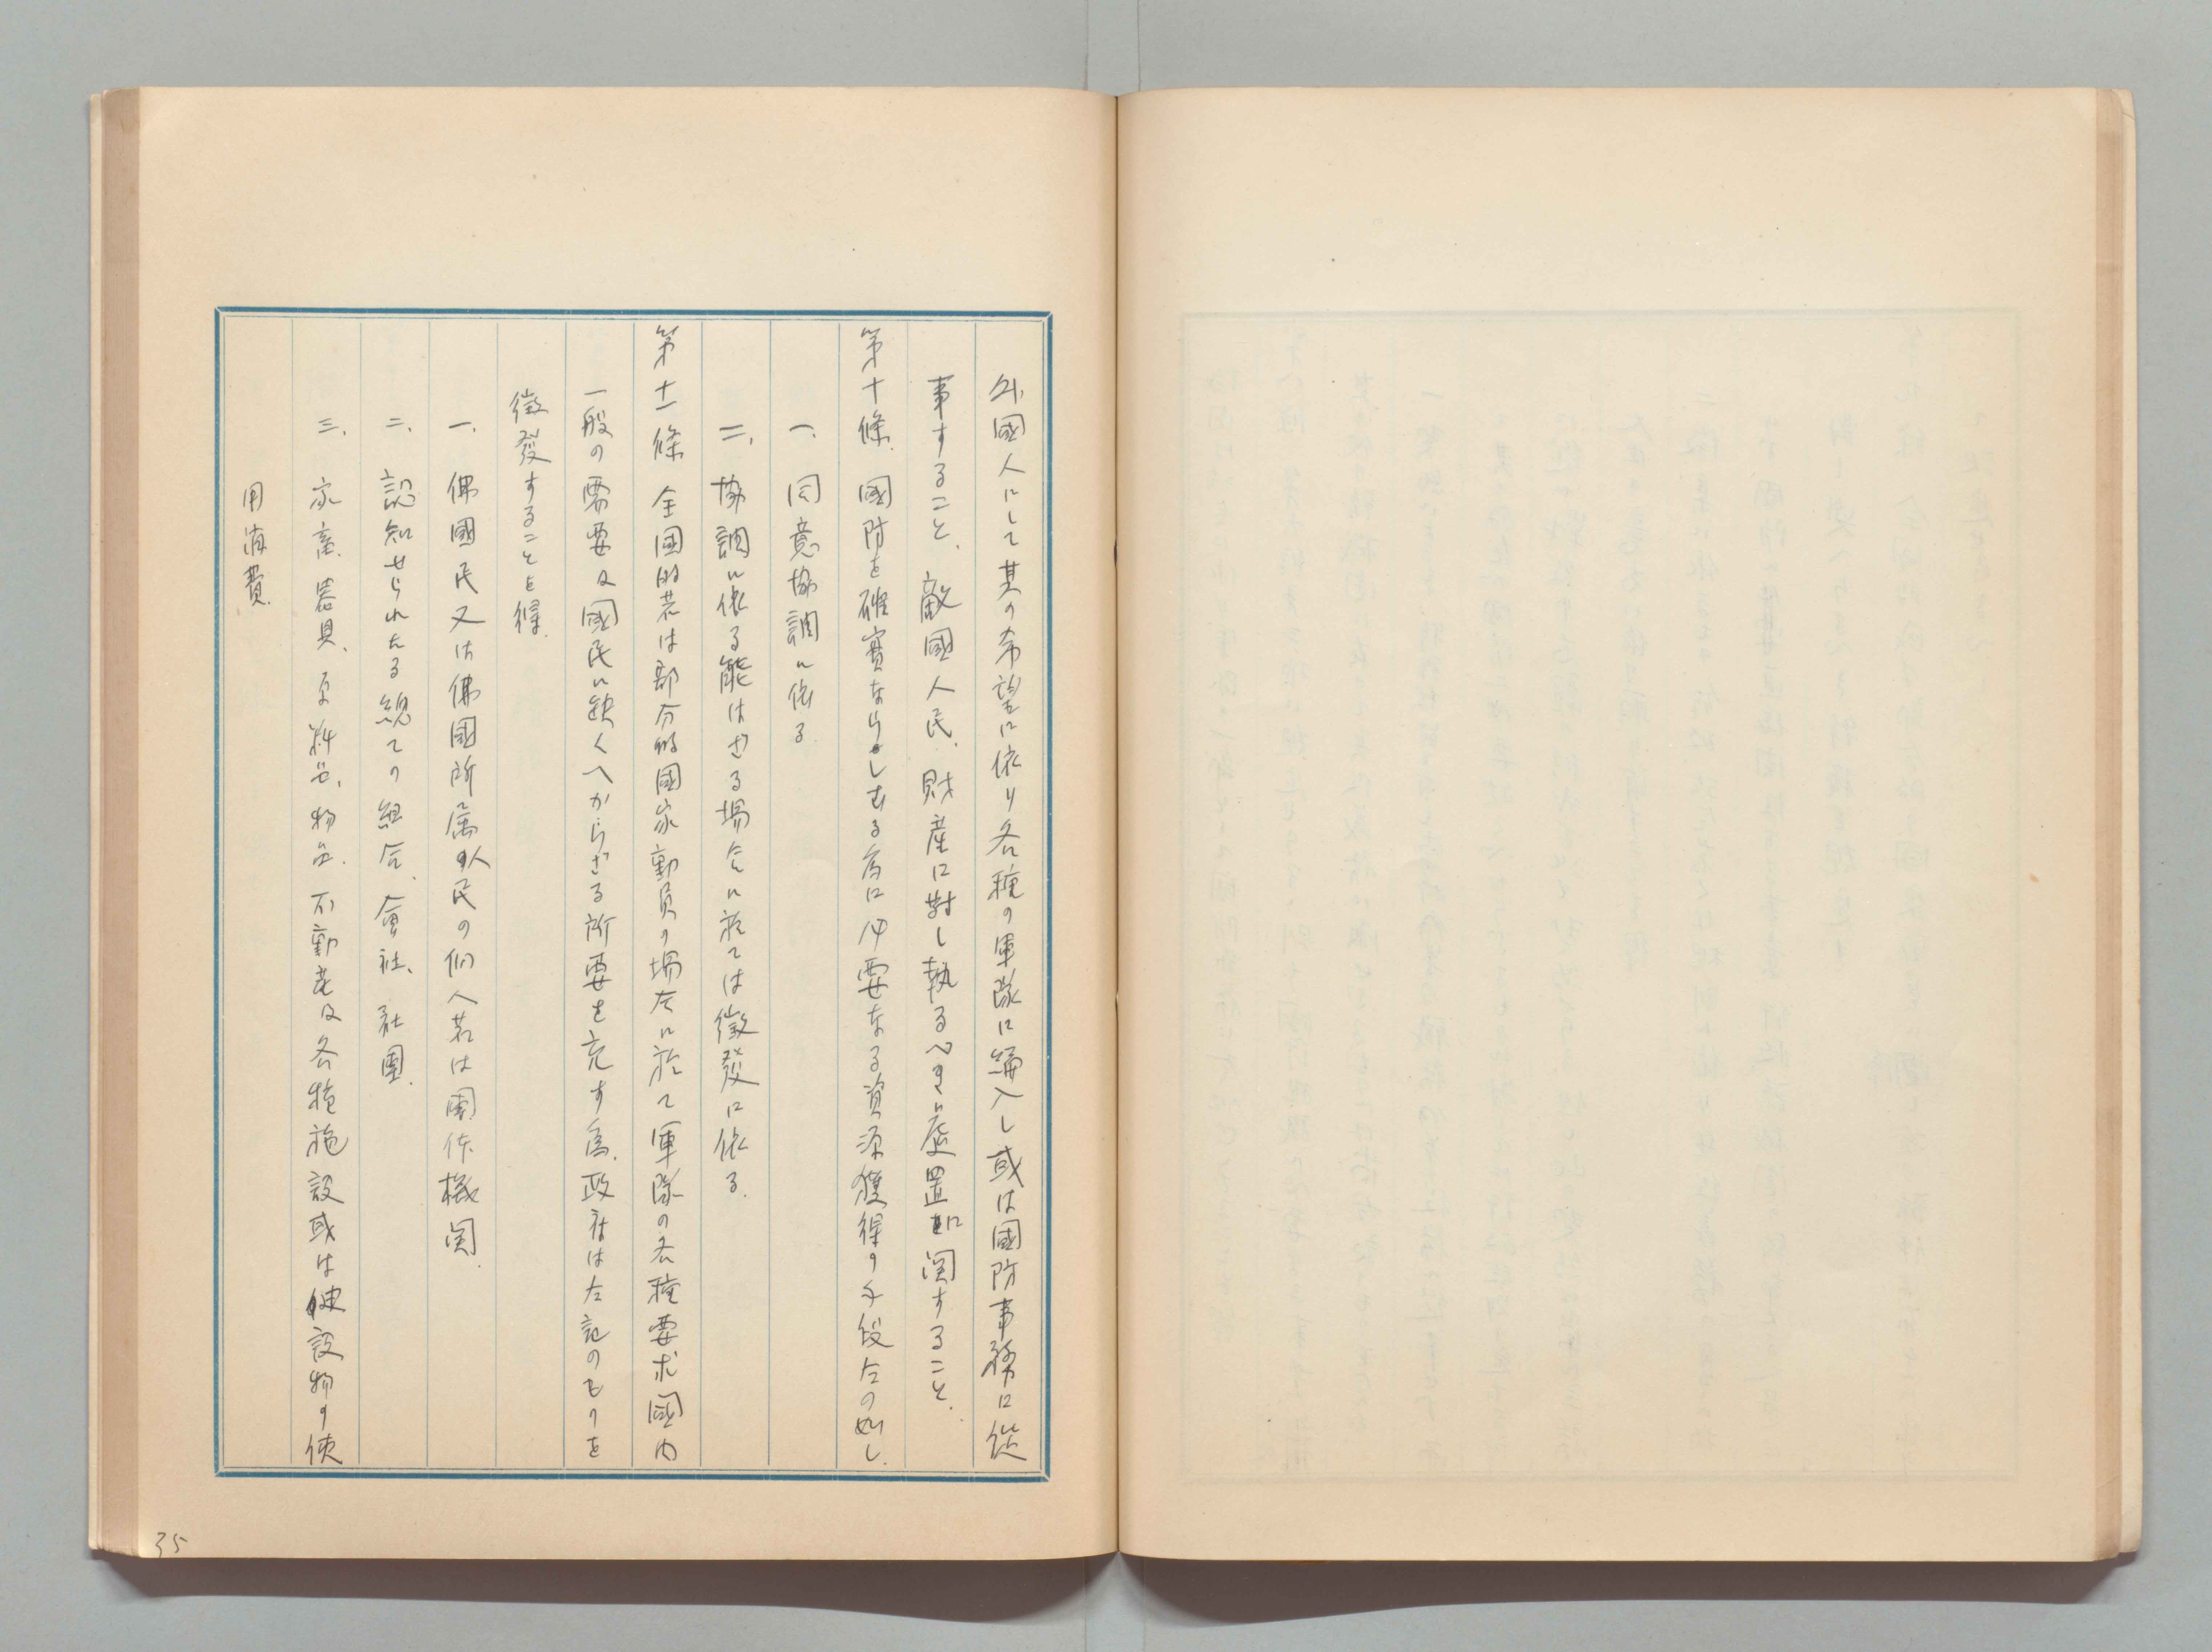 外國人にして其の希望に依り各種の軍隊に編入し或は國防事務に從
事すること、敵國人民、財産に對し執るべき處置に関すること、
第十條、國防を確實ならしむる為に必要なる資源獲得の手段左の如し、
一、同意協調に依る
二、協調に依る能はざる場合に於ては徵發に依る、
第十一條 全國的若は部分的國家動員の場合に於て軍隊の各種要求國内
一般の需要及國民に缺くへからざる所要を充す為、政府は左記のものを
徵發することを得、
一、佛國民又は佛國所属人民の個人若は團体機関、
二、認知せられたる總ての組合、會社、社團、
三、家畜、器具、原料品、物品、不動産及各種施設或は建設物の使
用消費、
35